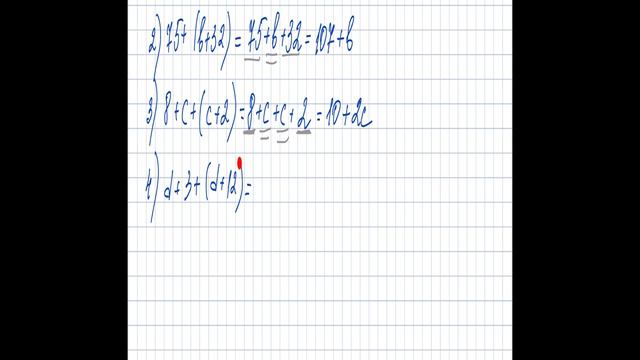 2) 75+(b+32)=75+b+32=107+b
3) 8+c+(c+2)=8+c+c+2=10+2c
4) d+3+(d+12)=